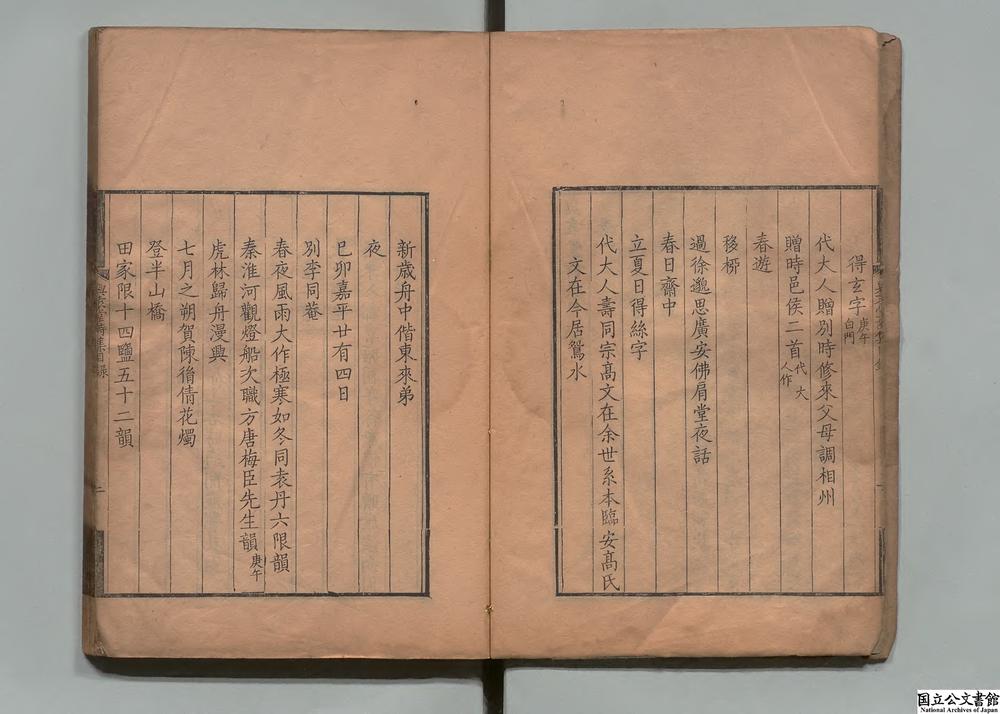 得玄字庚午白門
代大人贈別時修來父母調相州
贈時邑侯二首代大人作
春遊
移栁
過徐邈思廣安佛肩堂夜話
春日齋中
立夏日得絲字
代大人壽同宗髙文在余世系本臨安髙氏
文在今居鴛水
新歳舟中偕東來弟
夜
巳卯嘉平廿有四日
別李同菴
春夜風雨大作極寒如冬同袁丹六限韻
秦淮河觀燈船次職方唐梅臣先生韻庚午
虎林歸舟漫興
七月之朔賀陳簡倩花燭
登半山橋
田家限十四鹽五十二韻
二
国立公文書館
National Archives of Japan